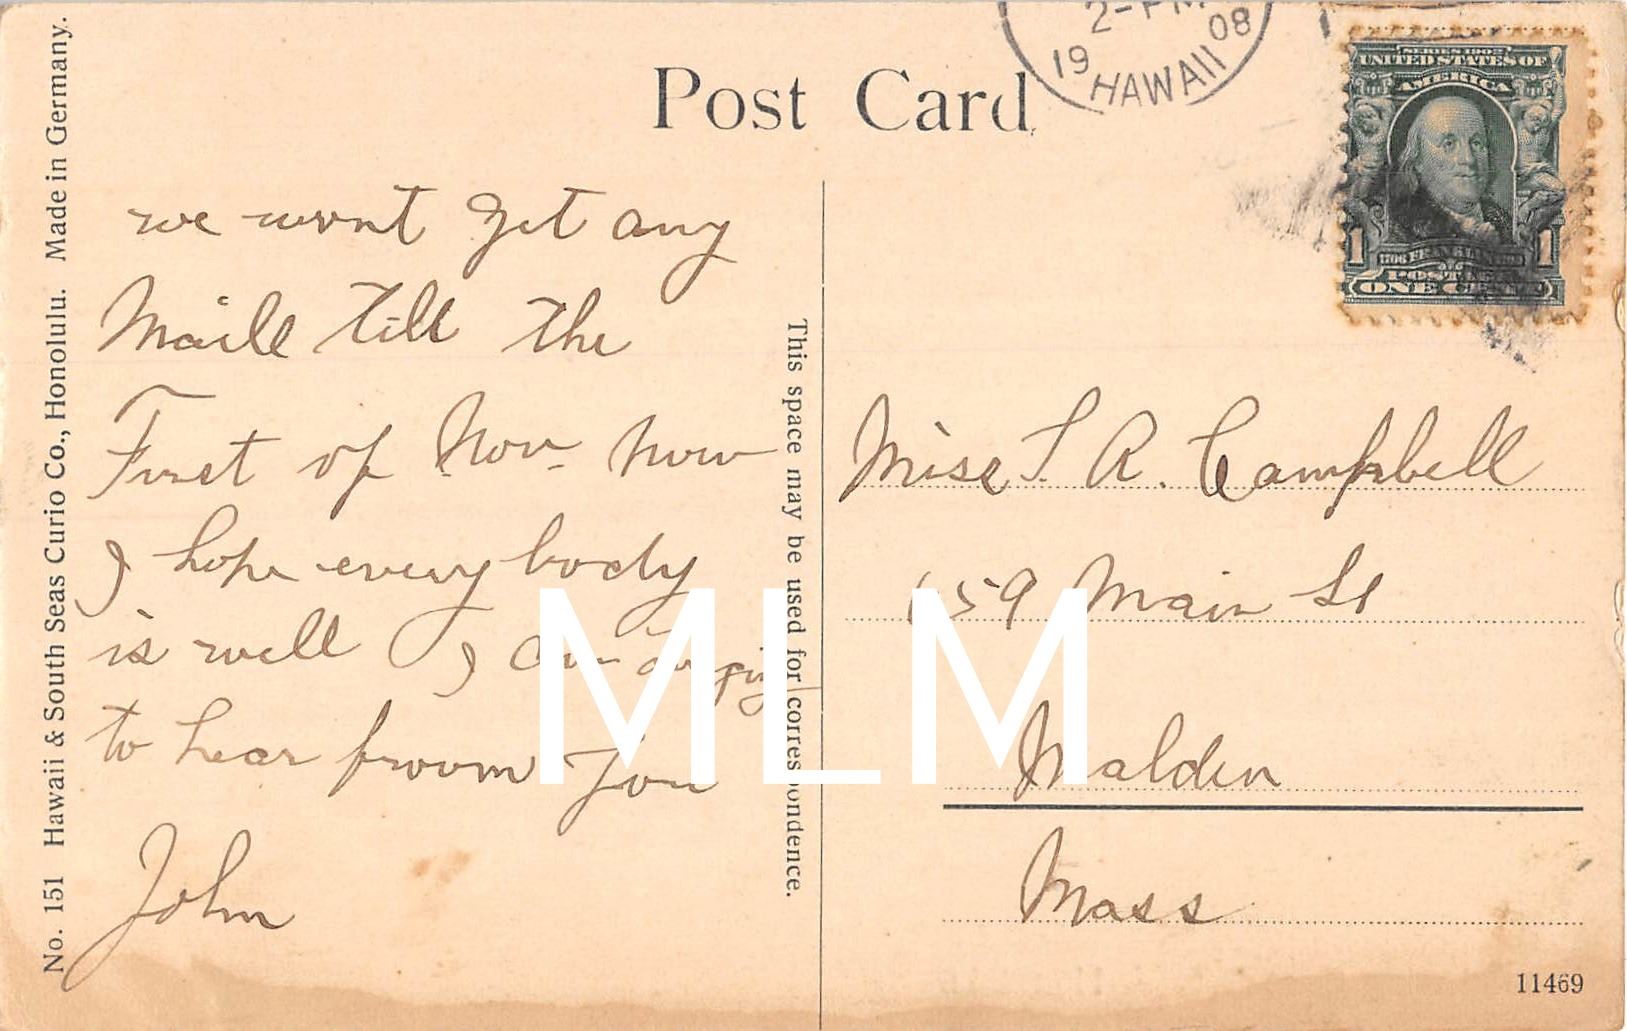 No. 151 Hawaii & South Seas Curio Co., Honolulu. Made in Germany.
Post Card
2-PM
19 08
HAWAII
SERIES 1902
UNITED STATES OF
AMERICA
1 1
POSTAGE
ONE CENT
we wont get any
Maill till the
First of Nov. Now
I hope every body
is well I am
to hear froom you
John
This space may be used for correspondence.
Miss A. Campbell
659 Main St
Malden
Mass
11469
MLM